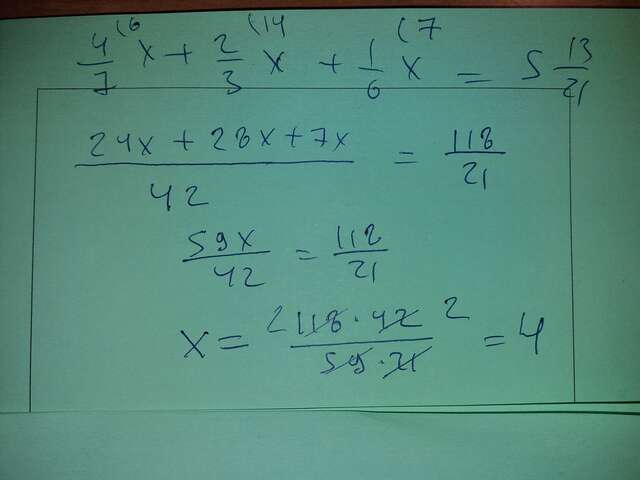 4/7 ⁶⁾ x + 2/3 ⁽¹⁴ x + 1/6 ⁽⁷ x = 5 13/21
(24x + 28x + 7x)/42 = 118/21
59x/42 = 118/21
x = (2 118 · 42 2)/(59 · 21) = 4